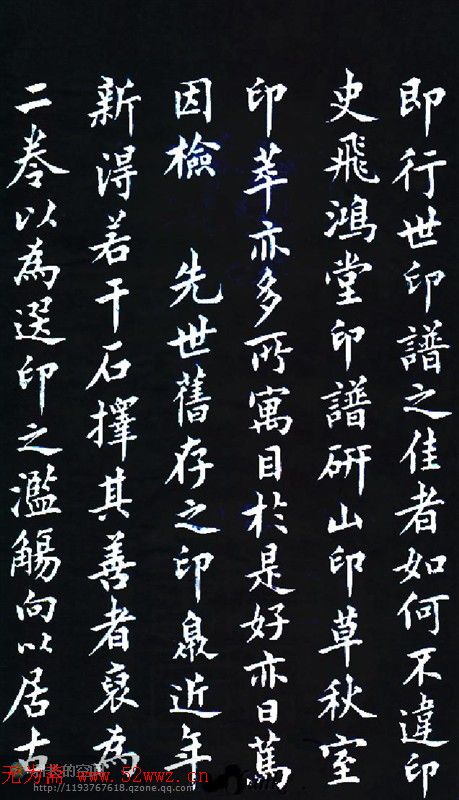 即行世印譜之佳者如何不違印
史飛鴻堂印譜研山印草秋室
印萃亦多所寓目於是好亦日篤
因檢 先世舊存之印泉近年
新得若干石擇其善者裒為
二卷以為選印之濫觴向以居古
无为斋 www.52wwz.cn
的空间
http://1193767618.qzone.qq.com